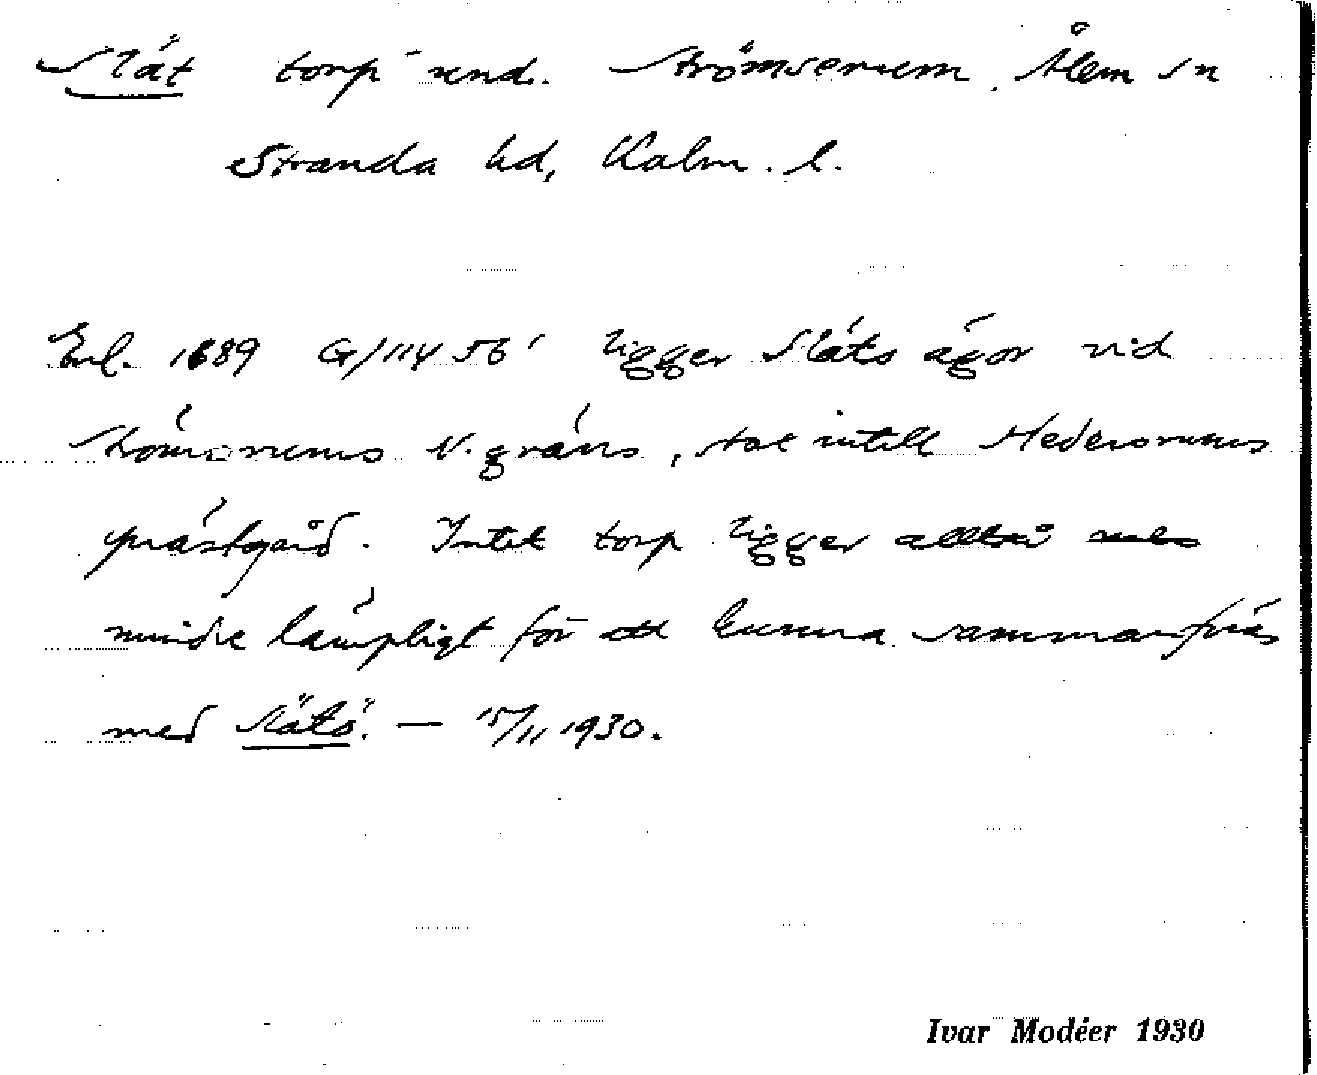 Slät torp und. Strömserum Ålem sn
Stranda hd, Kalm. l.
Enl. 1689 G/114 56' ligger Släts ägor vid
N. gräns, tät intill
prästgård. Intet torp ligger alltså
mindre lämpligt för att kunna sammanföras
med Slätö. — 15/11 1930.
Ivar Modéer 1930